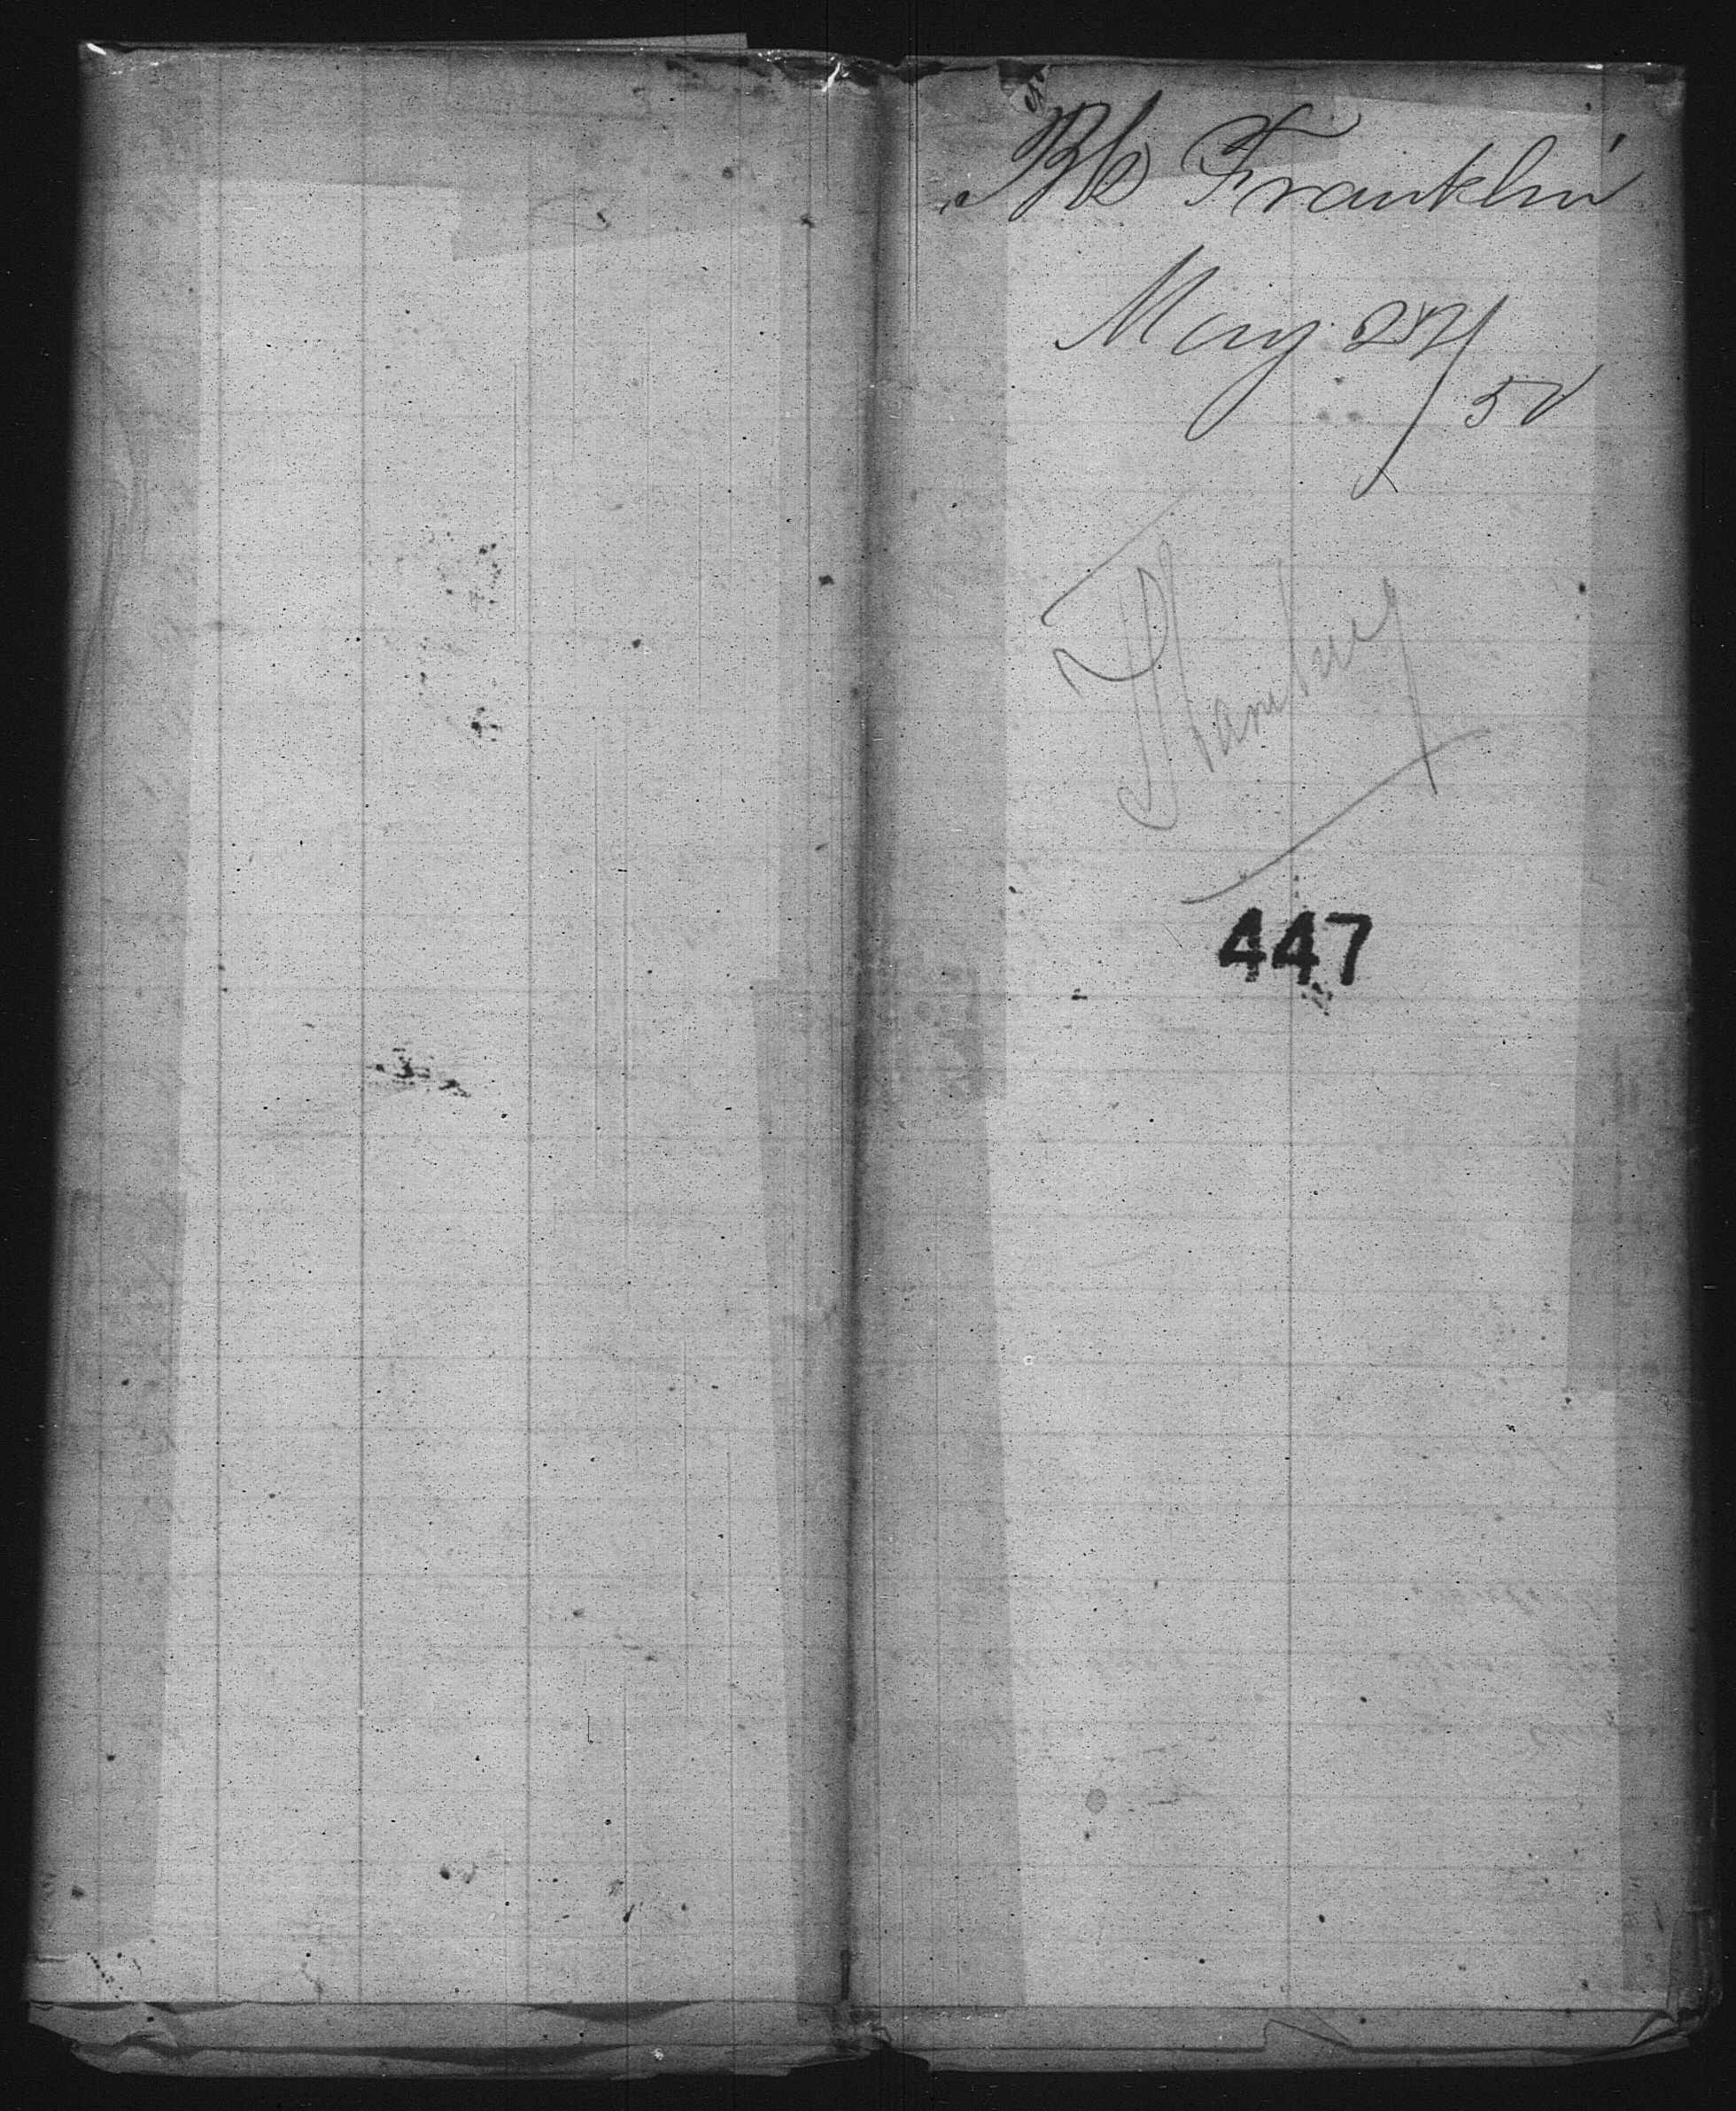 Bk Franklin
May 24/
50
Hamburg
447